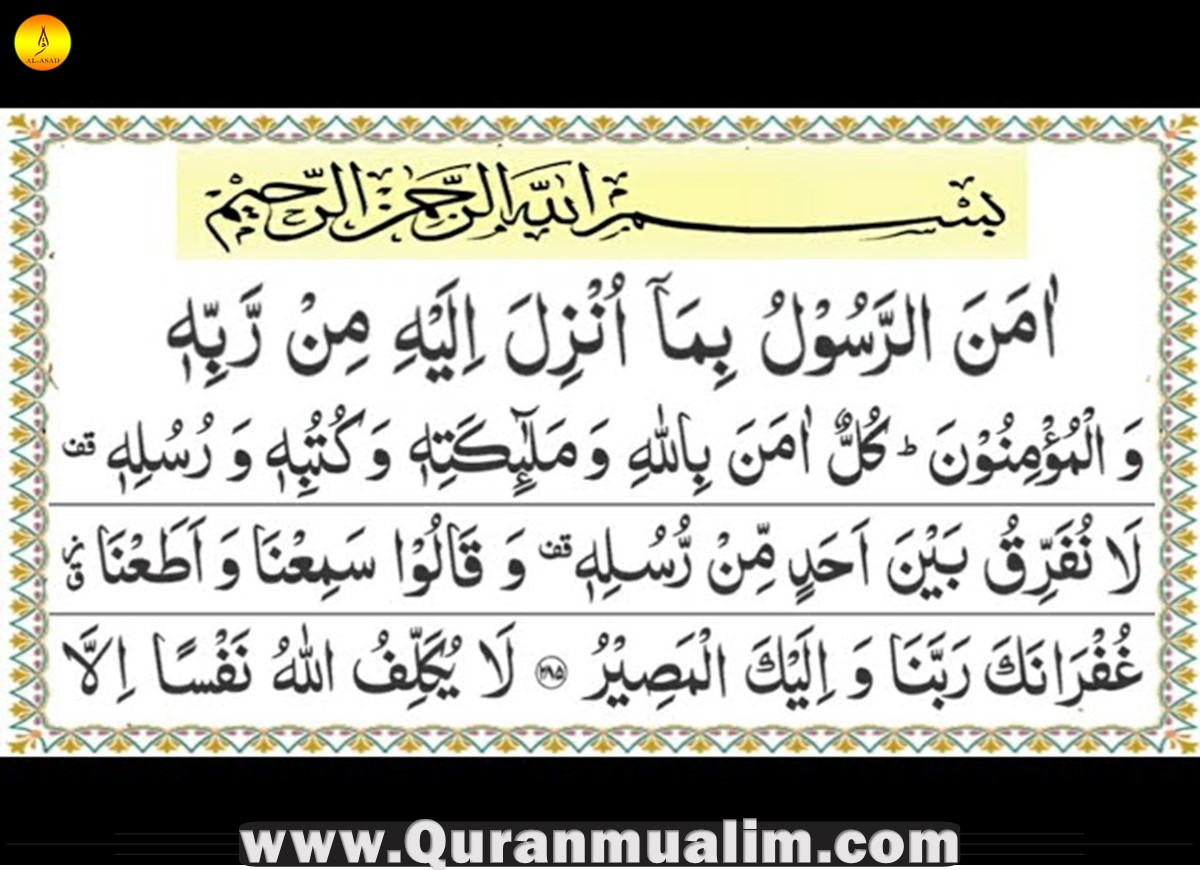 AL-ASAD
بسم الله الرحمن الرحيم
اٰمَنَ الرَّسُوْلُ بِمَاۤ اُنْزِلَ اِلَيْهِ مِنْ رَّبِّهٖ
وَ الْمُؤْمِنُوْنَ ؕ كُلٌّ اٰمَنَ بِاللّٰهِ وَ مَلٰٓىِٕكَتِهٖ وَ كُتُبِهٖ وَ رُسُلِهٖ قف
لَا نُفَرِّقُ بَيْنَ اَحَدٍ مِّنْ رُّسُلِهٖ قف وَ قَالُوْا سَمِعْنَا وَ اَطَعْنَا
غُفْرَانَكَ رَبَّنَا وَ اِلَيْكَ الْمَصِيْرُ ۲۸۵ لَا يُكَلِّفُ اللّٰهُ نَفْسًا اِلَّا
www.Quranmualim.com